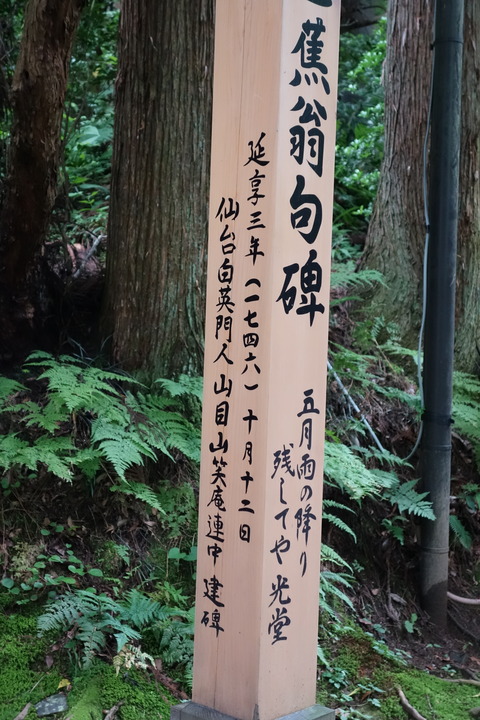 蕉翁句碑
五月雨の降り
残してや光堂
延享三年（一七四六）十月十二日
仙台白英門人山目山笑庵連中建碑